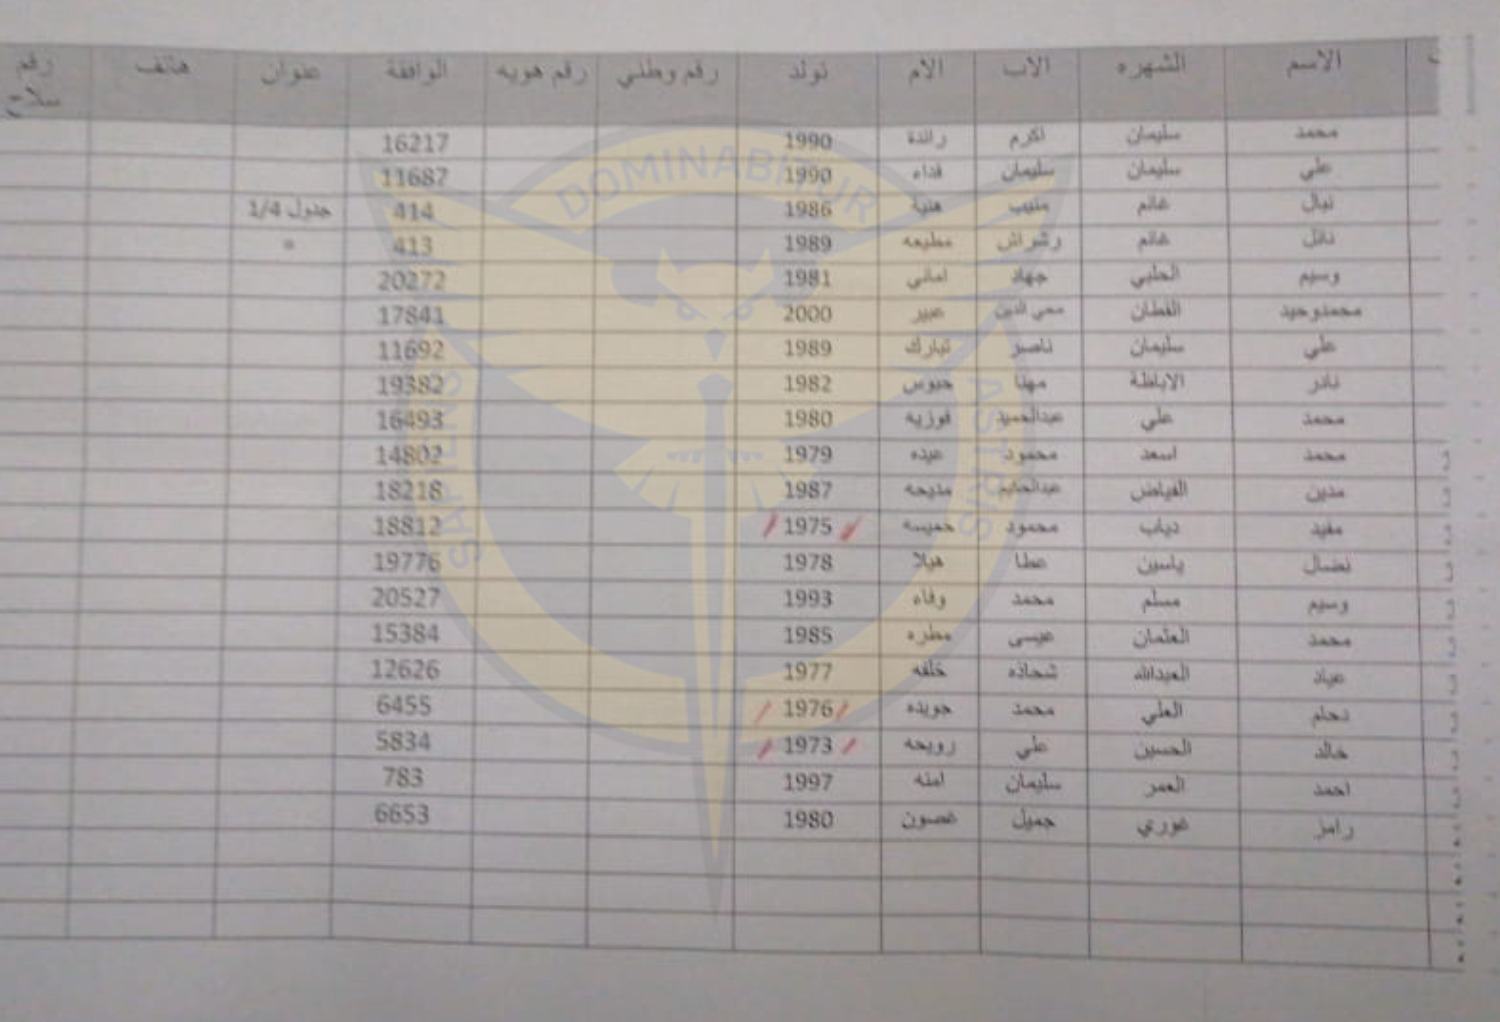 الاسم الشهره الاب الام تولد رقم وطني رقم هويه الوافقة عنوان هاتف رقم سلاح
محمد سليمان اكرم رائدة 1990 16217
علي سليمان سليمان فداء 1990 11687
نبال غانم منيب هنية 1986 414 جدول 1/4
نائل غانم رشراش مطيعه 1989 413
وسيم الحلبي جهاد اماني 1981 20272
محمدوحيد القطان محي الدين عبير 2000 17841
علي سليمان ناصر تبارك 1989 11692
نادر الاباظة مهنا حبوس 1982 19382
محمد علي عبدالحميد فوزيه 1980 16493
محمد اسعد محمود عيده 1979 14802
مدين الفياض عبدالحليم مديحه 1987 18218
مفيد دياب محمود خميسه 1975 18812
نضال ياسين عطا هيلا 1978 19776
وسيم مسلم محمد وفاء 1993 20527
محمد العثمان عيسى مطره 1985 15384
عياد العبدالله شحاده خلفه 1977 12626
دحام العلي محمد جويده 1976 6455
خالد الحسين علي رويحه 1973 5834
احمد العمر سليمان امنه 1997 783
رامز غوري جميل غصون 1980 6653
SAPIENS DOMINABITUR ASTRIS